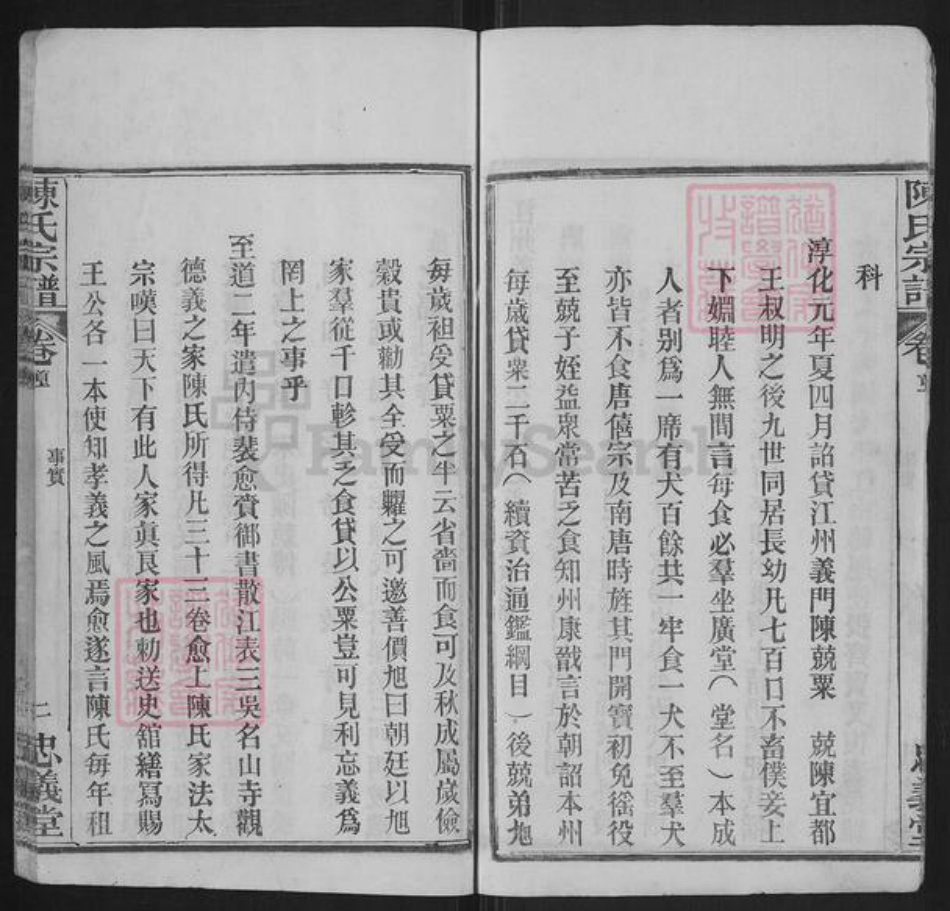 陳氏宗譜
卷首
科
淳化元年夏四月詔貸江州義門陳兢粟　兢陳宜都
王叔明之後九世同居長幼凡七百口不畜僕妾上
下婣睦人無間言每食必羣坐廣堂（堂名）本成
人者别爲一席有犬百餘共一牢食一犬不至羣犬
亦皆不食唐僖宗及南唐時旌其門開寶初免徭役
至兢子姪益衆常苦乏食知州康戩言於朝詔本州
每歲貸粟二千石（續資治通鑑綱目）後兢弟旭
每歲袒受貸粟之半云省嗇而食可及秋成屬歲儉
穀貴或勸其全受而糶之可邀善價旭曰朝廷以旭
家羣從千口軫其乏食貸以公粟豈可見利忘義爲
罔上之事乎
至道二年遣內侍裴愈賫御書散江表三吳名山寺觀
德義之家陳氏所得凡三十三卷愈上陳氏家法太
宗嘆曰天下有此人家眞良家也勅送史舘繕寫賜
王公各一本使知孝義之風焉愈遂言陳氏每年租
陳氏宗譜
卷首
事實
二
忠義堂
FamilySearch